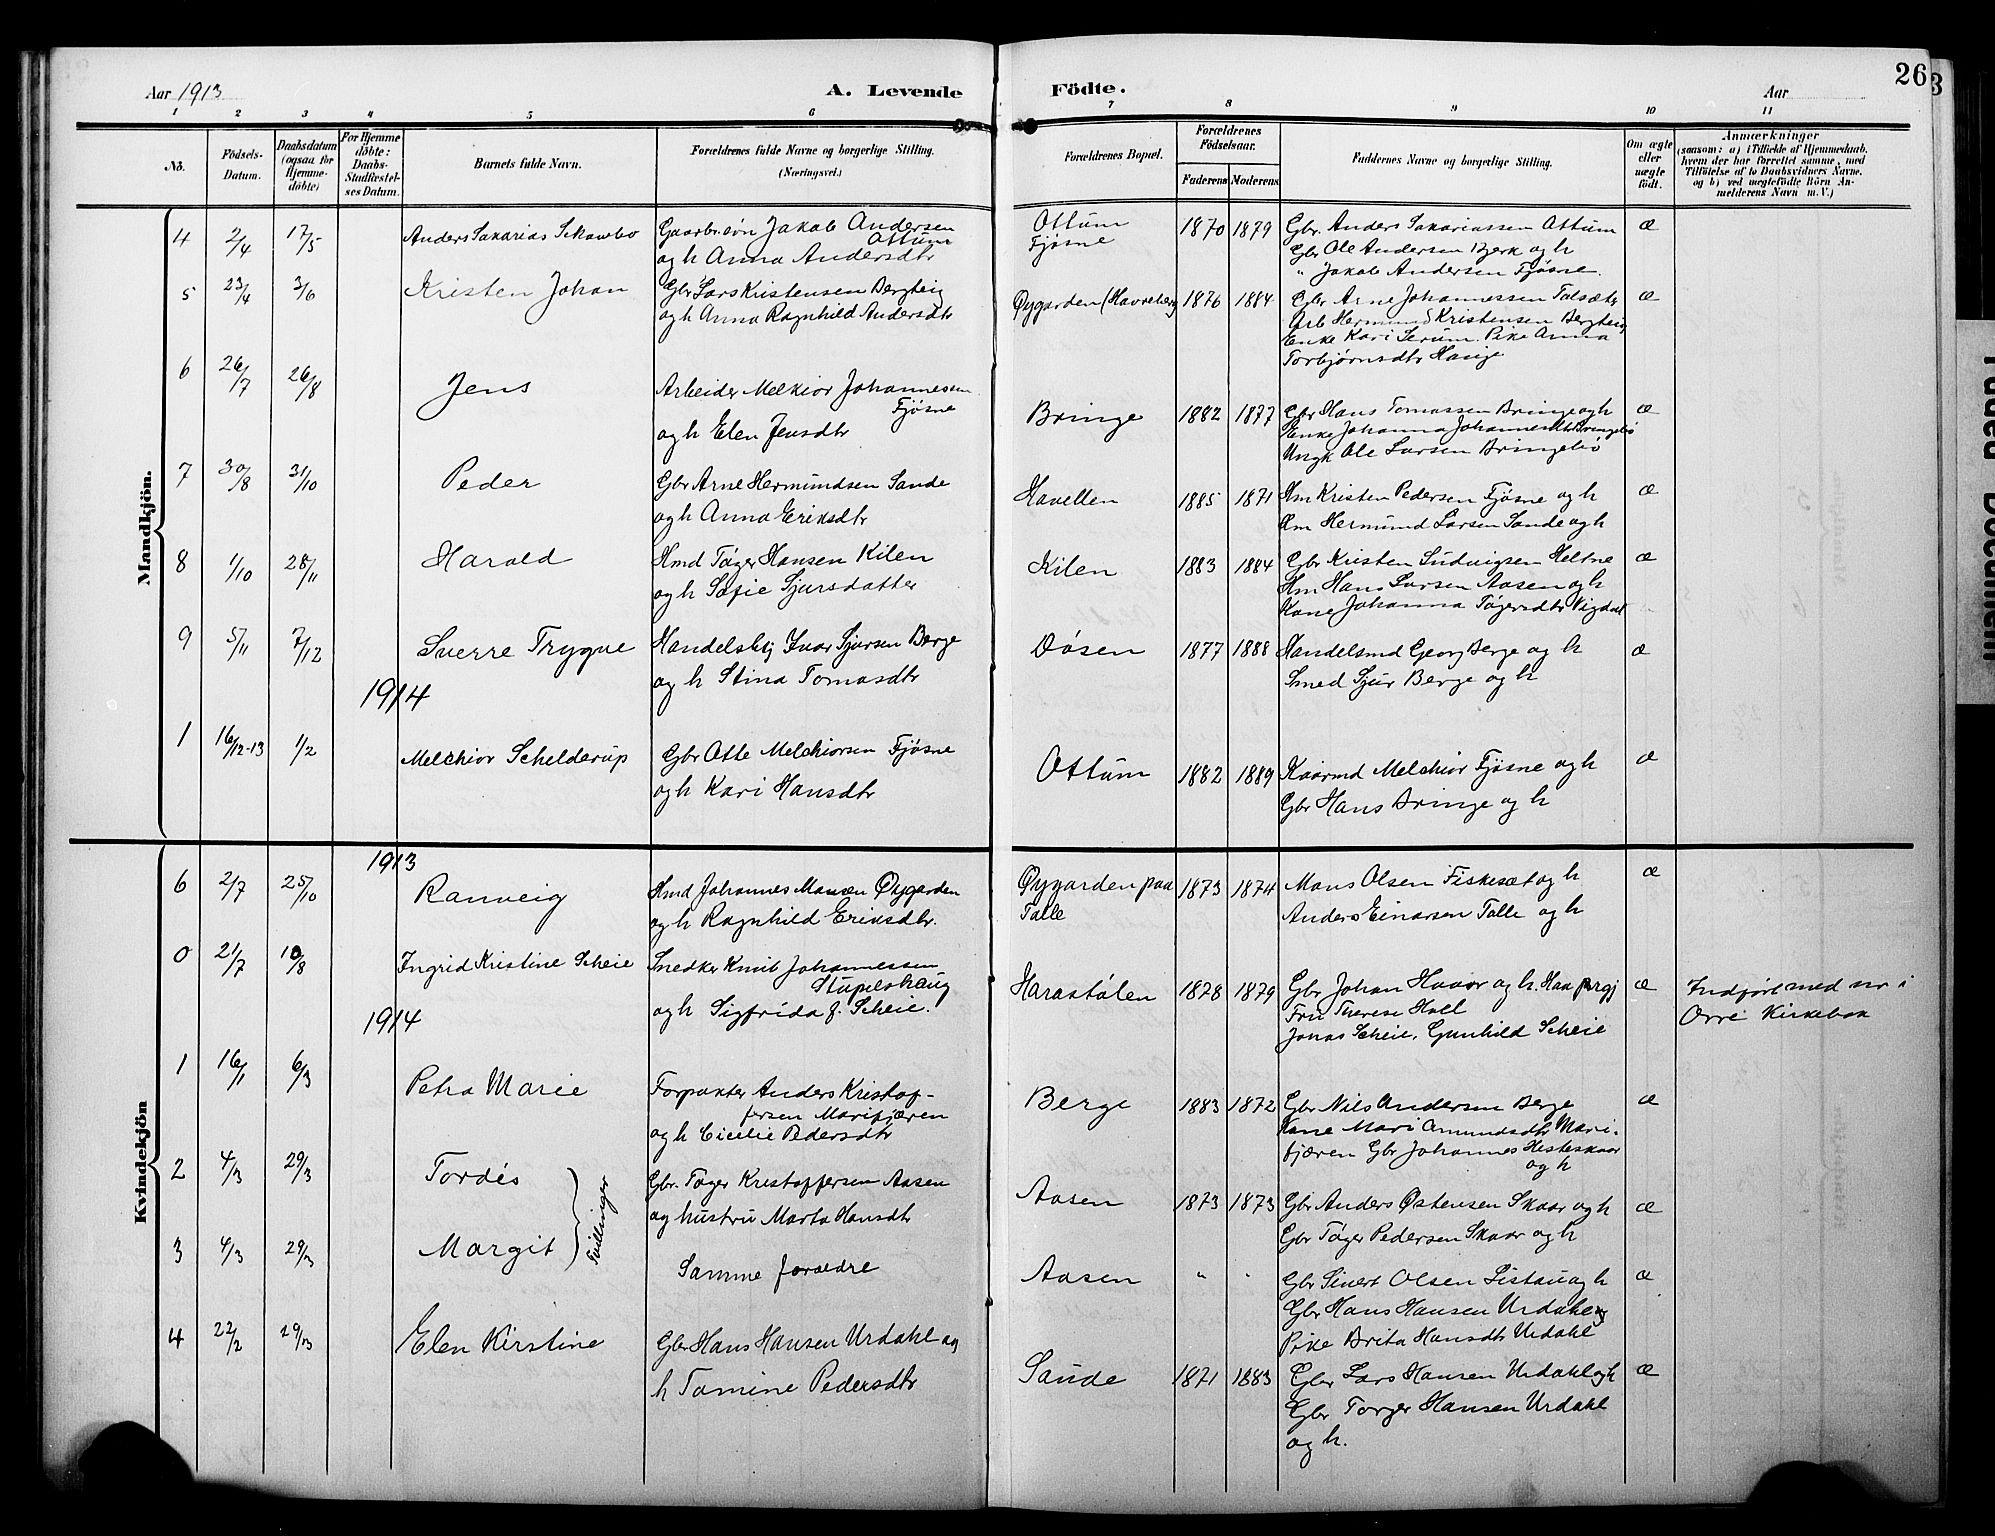 26
3
Aar 1913
A. Levende
Födte.
Aar
1 2 3 4 5 6 7 8 9 10 11
No.
Födsels-
Datum.
Daabsdatum
(ogsaa for
Hjemme-
döbte)
For Hjemme
döbte:
Daabs-
Stadfæstel-
ses Datum.
Barnets fulde Navn.
Forældrenes fulde Navne og borgerlige Stilling.
(Næringsvei.)
Forældrenes Bopæl.
Forældrenes
Födselsaar.
Faderens Moderens
Faddernes Navne og borgerlige Stilling.
Om ægte
eller
uægte
födt.
Anmærkninger
(saasom: a) i Tilfælde af Hjemmedaab,
hvem der har forrettet samme, med
Tilföielse af to Daabsvidners Navne.
og b) ved uægtefödte Börn An-
melderens Navn m. V.)
Mandkjön.
4 2/4 17/5 Anders Sakarias Gaarbr. søn Jakob Andersen Ottum og h Anna Andersdtr
Ottum Fjøsne 1870 1879 Gbr. Anders Sakariassen Ottum æ
Gbr Ole Andersen Bjerk og h
" Jakob Andersen Fjøsne.
5 23/4 3/6 Kristen Johan Gbr Lars Kristensen Bergteig
og h Anna Ragnhild Andersdtr
Øygarden (Havreberg) 1876 1884 Gbr Arne Johannessen Talsæte æ
Arb Hermund Kristensen Bergteig
Enke Kari Serum. Pike Anna
Torbjørnsdtr Hauge
6 26/7 26/8 Jens Arbeider Melkior Johannessen Fjøsne
og h Elen Jensdtr
Bringe 1882 1877 Gbr Hans Tomassen Bringe og h æ
Enke Johanna Johannesdtr Bringebø
Ungk Ole Larsen Bringebø
7 30/8 31/10 Peder Gbr Arne Hermundsen Sande
og h Anna Eriksdtr
Havellen 1885 1871 Hm Kristen Pedersen Fjøsne og h æ
Hm Hermund Larsen Sande og h
8 1/10 28/11 Harald Hmd Tøger Hansen Kilen
og h Sofie Sjursdatter
Kilen 1883 1884 Gbr Kristen Ludvigsen Heltne æ
Hm Hans Larsen Aasen og h
Kone Johanna Tøgersdtr Vigdal
9 5/11 7/12 Sverre Trygve Handelsbtj Ivar Sjursen Berge
og h Stina Tomasdtr
Døsen 1877 1888 Handelsmd Georg Berge og h æ
Smed Sjur Berge og h
1914
1 16/12-13 1/2 Melchior Schelderup Gbr Otte Melchiorsen Fjøsne
og h Kari Hansdtr
Ottum 1882 1889 Kaarmd Melchior Fjøsne og h æ
Gbr Hans Bringe og h
Kvindekjön
1913
6 2/7 25/10 Ranveig Hmd Johannes Monsen Øygarden
og h Ragnhild Eriksdtr.
Øygarden paa
Talle 1873 1874 Mons Olsen Fiskesæt og h æ
Anders Einarsen Talle og h
0 21/7 10/8 Ingrid Kristine Scheie Snedker Knut Johannessen
Stupelshaug
og h Sigfrida f. Scheie.
Harastølen 1878 1879 Gbr Johan Havor og h. æ
Fru Therese Holl
Jonas Scheie, Gunhild Scheie
Indført med nr i
Orre Kirkebok
1914
1 16/1 6/3 Petra Marie Forpakter Anders Kristof-
fersen Marifjæren
og h Cicilie Pedersdtr
Berge 1883 1872 Gbr Nils Andersen Berge æ
Kone Mari Amundsdtr Mari-
fjæren Gbr Johannes Hesteskaar
og h
2 4/3 29/3 Tordis Gbr. Tøger Kristoffersen Aasen
og hustru Marta Hansdtr
Aasen 1873 1873 Gbr Anders Østensen Skaar og h æ
Gbr Tøger Pedersen Skaar og h
Tvillinger
3 4/3 29/3 Margit Samme forældre
Aasen " " Gbr Sivert Olsen Listau og h æ
Gbr Hans Hansen Urdahl og
Pike Brita Hansdtr Urdahl
4 22/2 29/3 Elen Kirstine Gbr Hans Hansen Urdahl og
h Tomine Pedersdtr
Sande 1871 1883 Gbr Lars Hansen Urdahl og h æ
Gbr Torger Hansen Urdahl
og h.